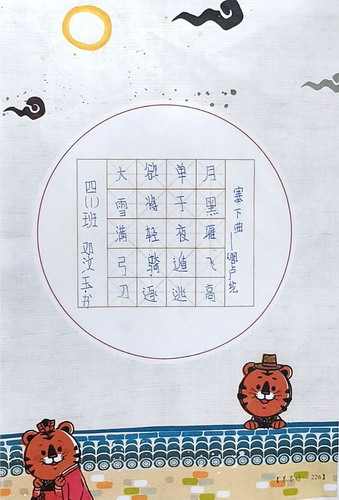 塞下曲——唐卢纶
月黑雁飞高
单于夜遁逃
欲将轻骑逐
大雪满弓刀
四(1)班 邓汶玉·书
226